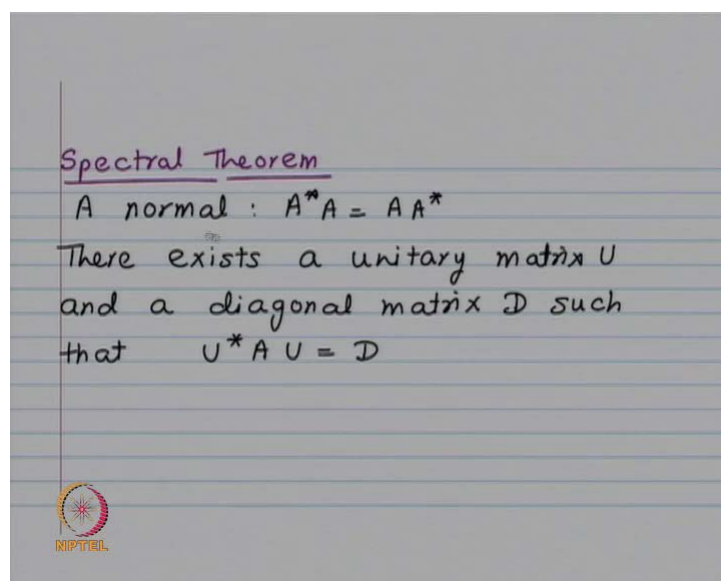 Spectral Theorem
A normal : A*A = AA*
There exists a unitary matrix U
and a diagonal matrix D such
that U*AU = D
NPTEL